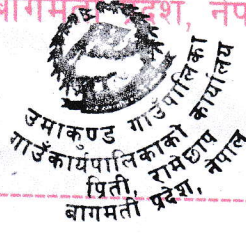 बागमती प्रदेश, नेप
उमाकुण्ड गाउँपालिका
गाउँकार्यपालिकाको कार्यालय
प्रिती, रामेछाप
बागमती प्रदेश, नेपाल